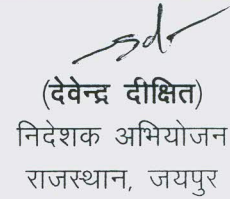 sd-
(देवेन्द्र दीक्षित)
निदेशक अभियोजन
राजस्थान, जयपुर